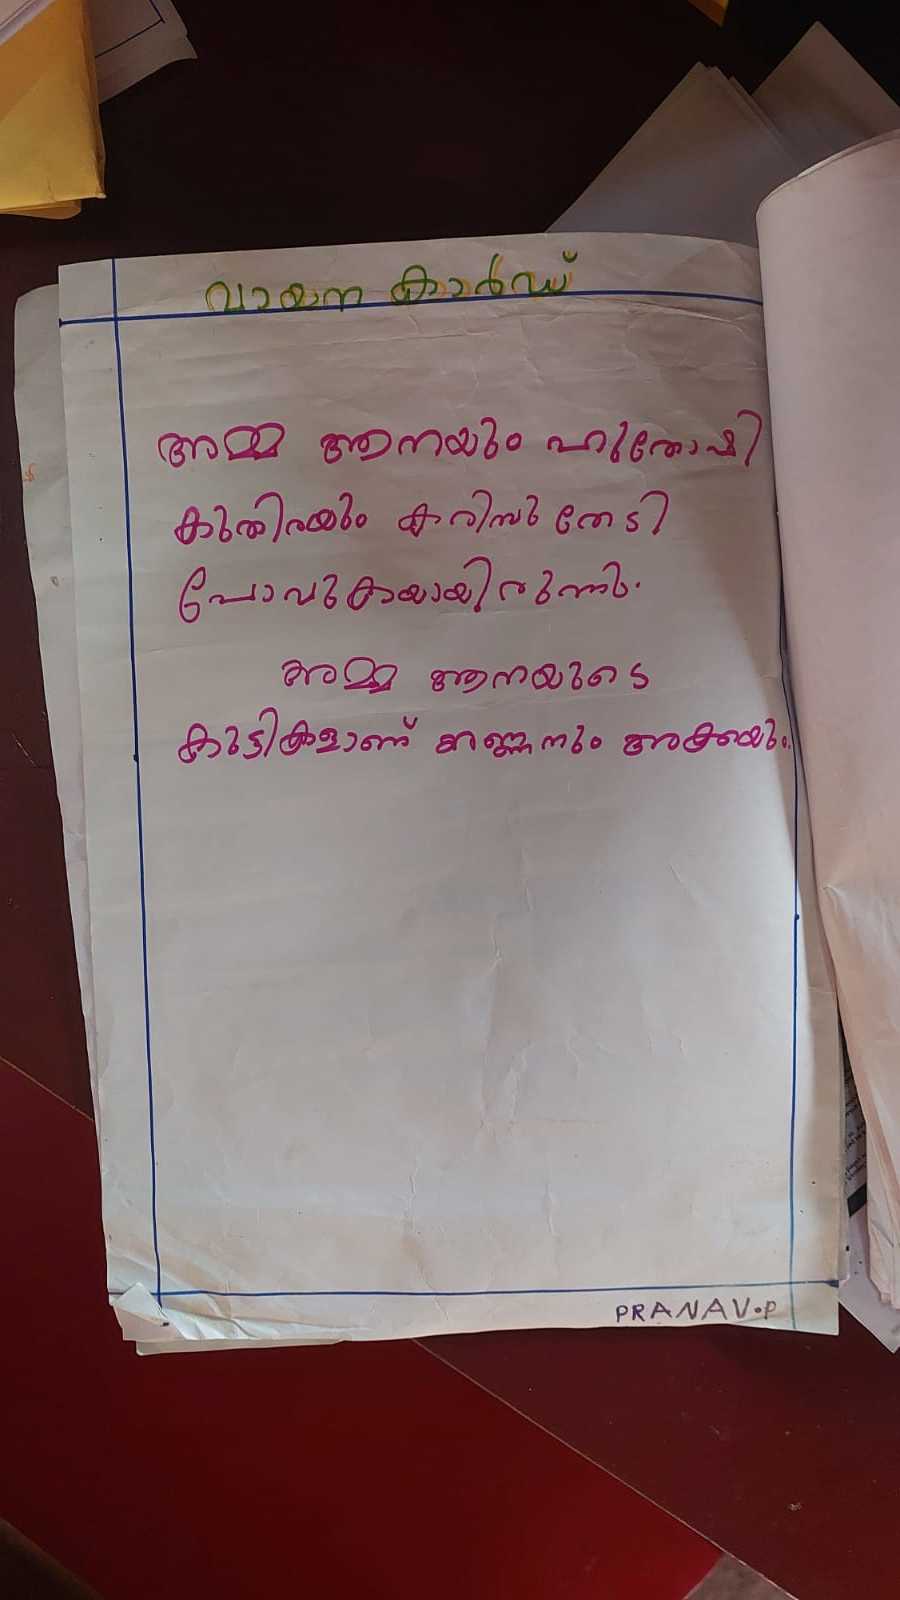 വായന കാർഡ്
അമ്മ ആനയും ഹുതോഷി
കുതിരയും കരിമ്പു തേടി
പോവുകയായിരുന്നു.
അമ്മ ആനയുടെ
കുട്ടികളാണ് കണ്ണനും
PRANAV.P